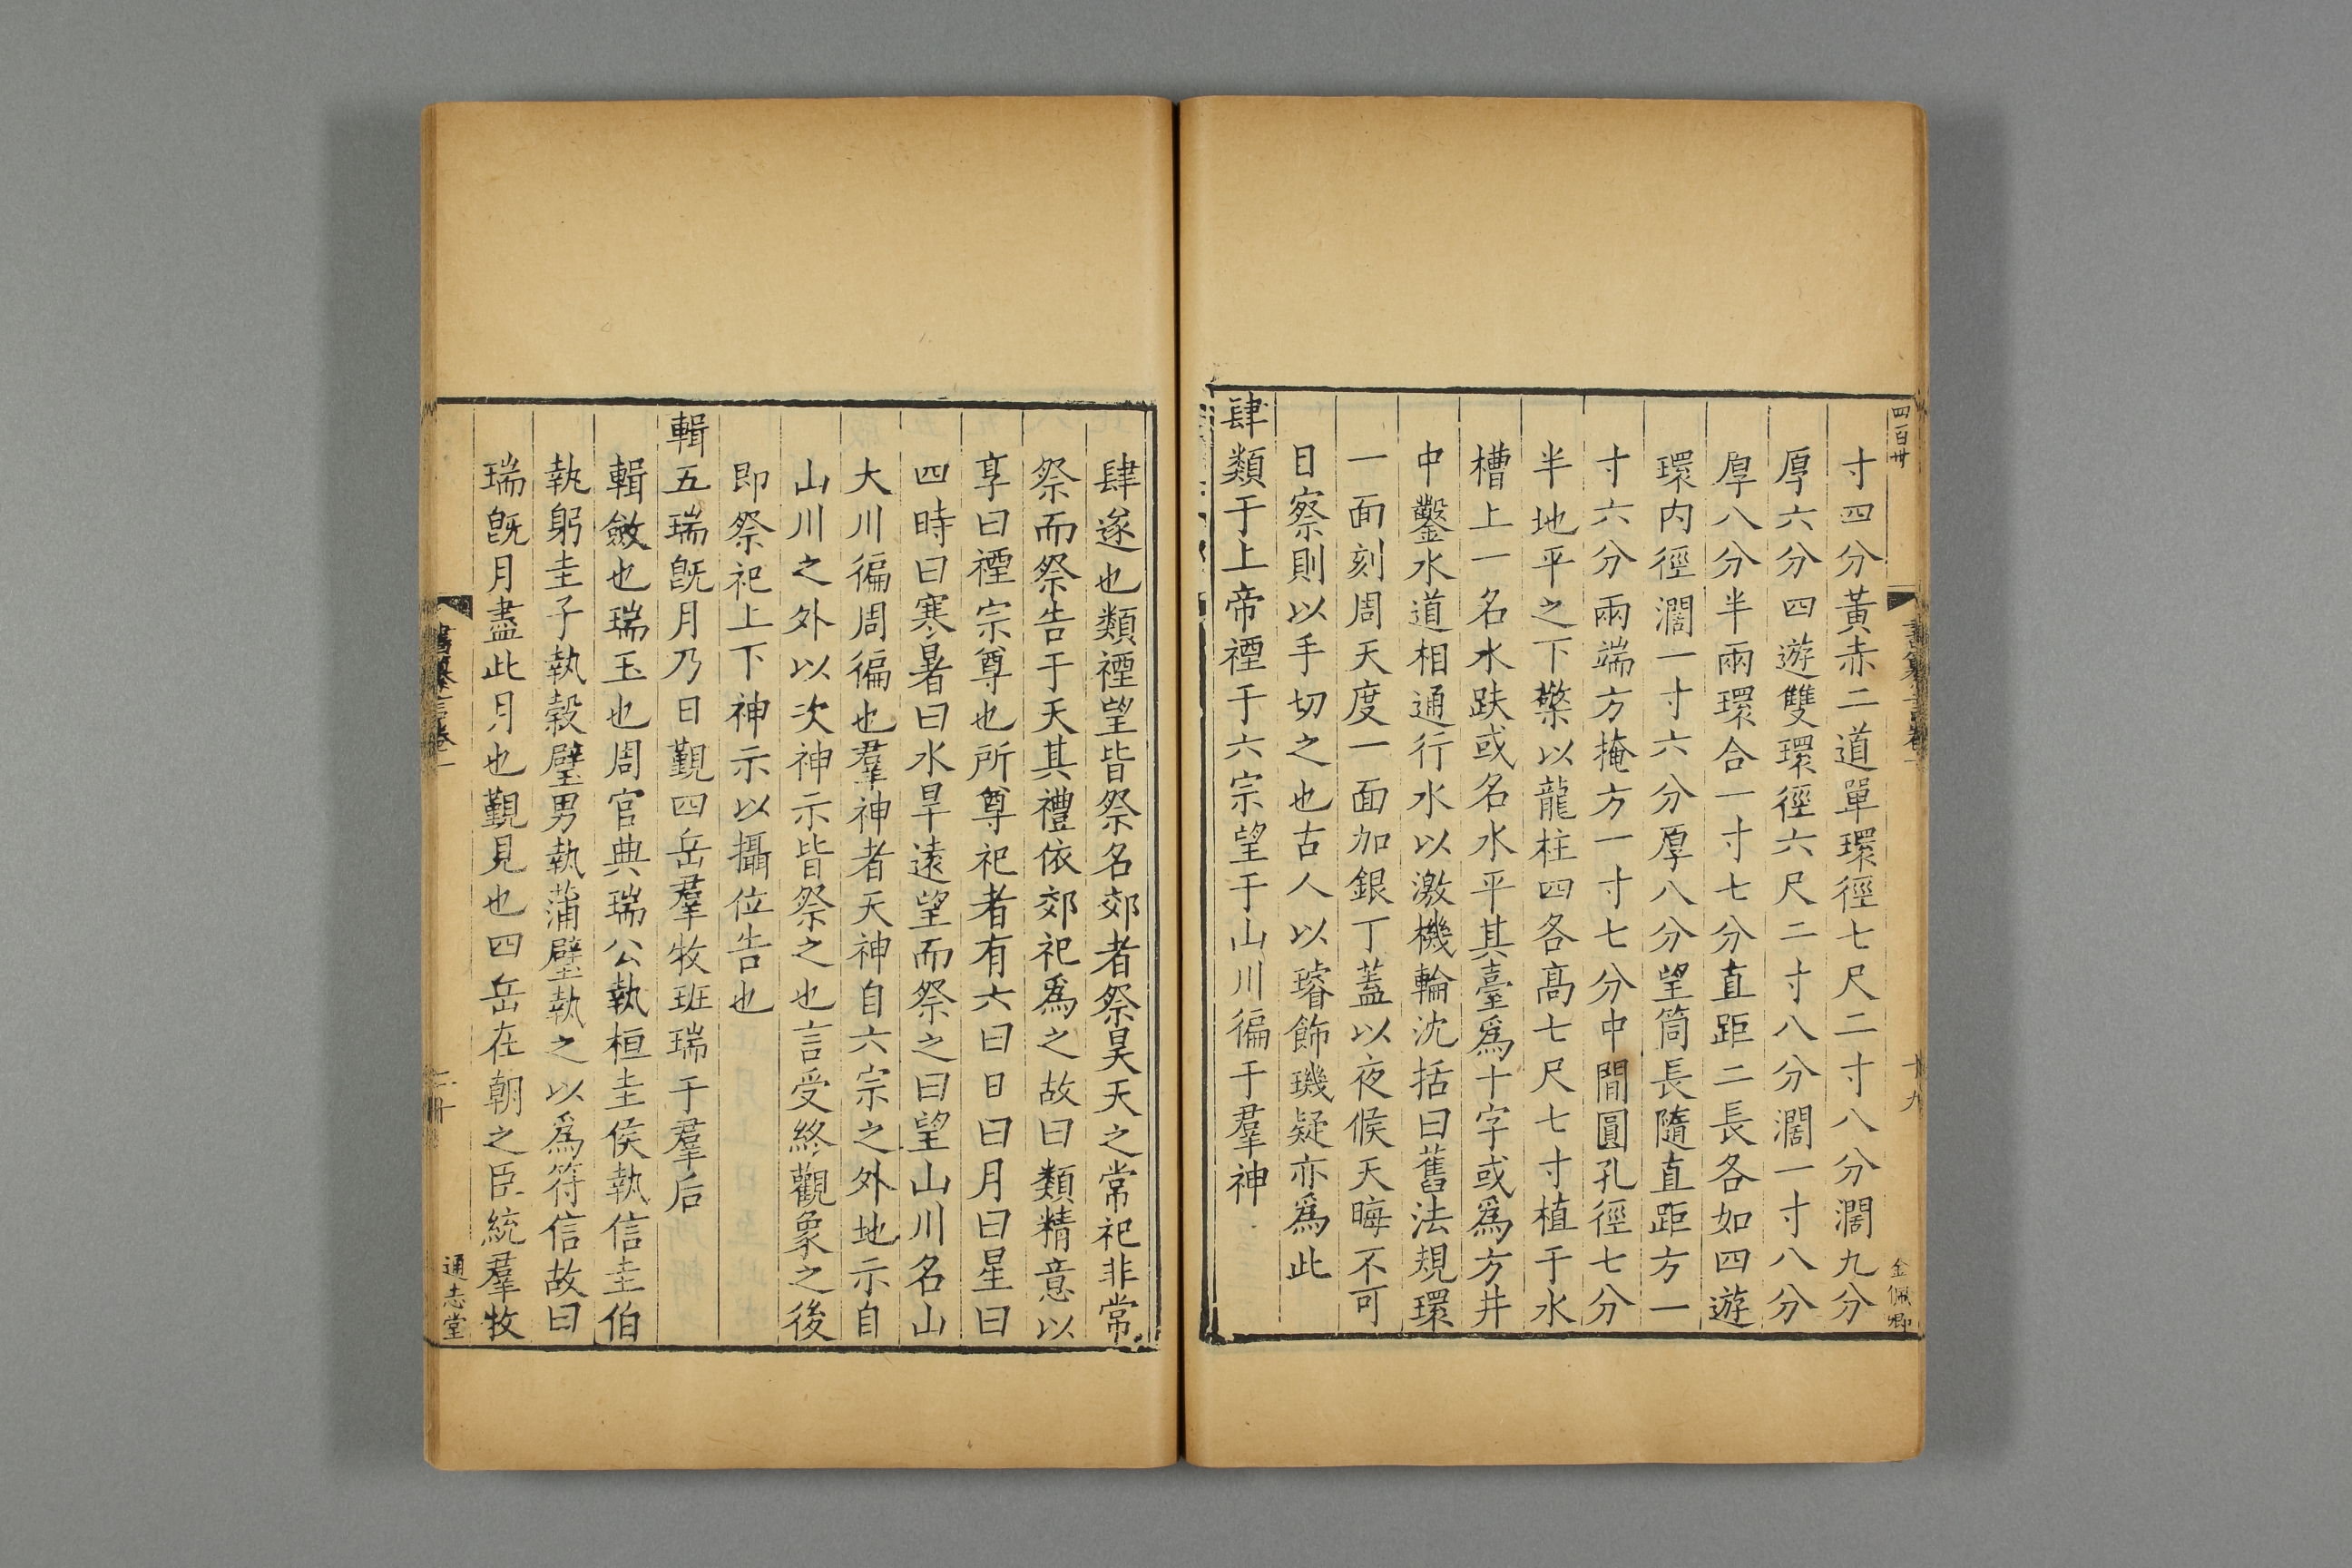 四百卅
書纂言卷一
十九
金佩卿
寸四分黃赤二道單環徑七尺二寸八分濶九分
厚六分四遊雙環徑六尺二寸八分濶一寸八分
厚八分半兩環合一寸七分直距二長各如四遊
環内徑濶一寸六分厚八分望筒長隨直距方一
寸六分兩端方掩方一寸七分中間圓孔徑七分
半地平之下檠以龍柱四各高七尺七寸植于水
槽上一名水趺或名水平其臺爲十字或爲方井
中鑿水道相通行水以激機輪沈括曰舊法規環
一面刻周天度一面加銀丁蓋以夜候天晦不可
目察則以手切之也古人以璿飾璣疑亦爲此
肆類于上帝禋于六宗望于山川徧于羣神
肆遂也類禋望皆祭名郊者祭昊天之常祀非常
祭而祭告于天其禮依郊祀爲之故曰類精意以
享曰禋宗尊也所尊祀者有六曰日曰月曰星曰
四時曰寒暑曰水旱遠望而祭之曰望山川名山
大川徧周徧也羣神者天神自六宗之外地示自
山川之外以次神示皆祭之也言受終觀象之後
即祭祀上下神示以攝位告也
輯五瑞旣月乃日覲四岳羣牧班瑞于羣后
輯斂也瑞玉也周官典瑞公執桓圭侯執信圭伯
執躬圭子執穀璧男執蒲璧執之以爲符信故曰
瑞旣月盡此月也覲見也四岳在朝之臣統羣牧
書纂言卷一
二十
通志堂